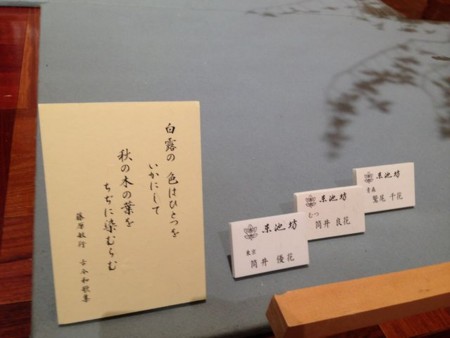 白露の 色はひとつを
いかにして
秋の木の葉を
ちぢに染むらむ
藤原敏行 古今和歌集
池坊
東京
筒井 優花
池坊
むつ
筒井 良花
池坊
青森
鷲尾 千花